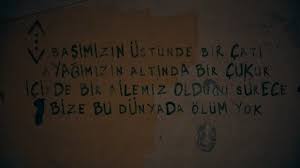 BAŞIMIZIN ÜSTÜNDE BİR ÇATI
AYAĞIMIZIN ALTINDA BİR ÇUKUR
İÇİNDE BİR AİLEMİZ OLDUĞU SÜRECE
BİZE BU DÜNYADA ÖLÜM YOK